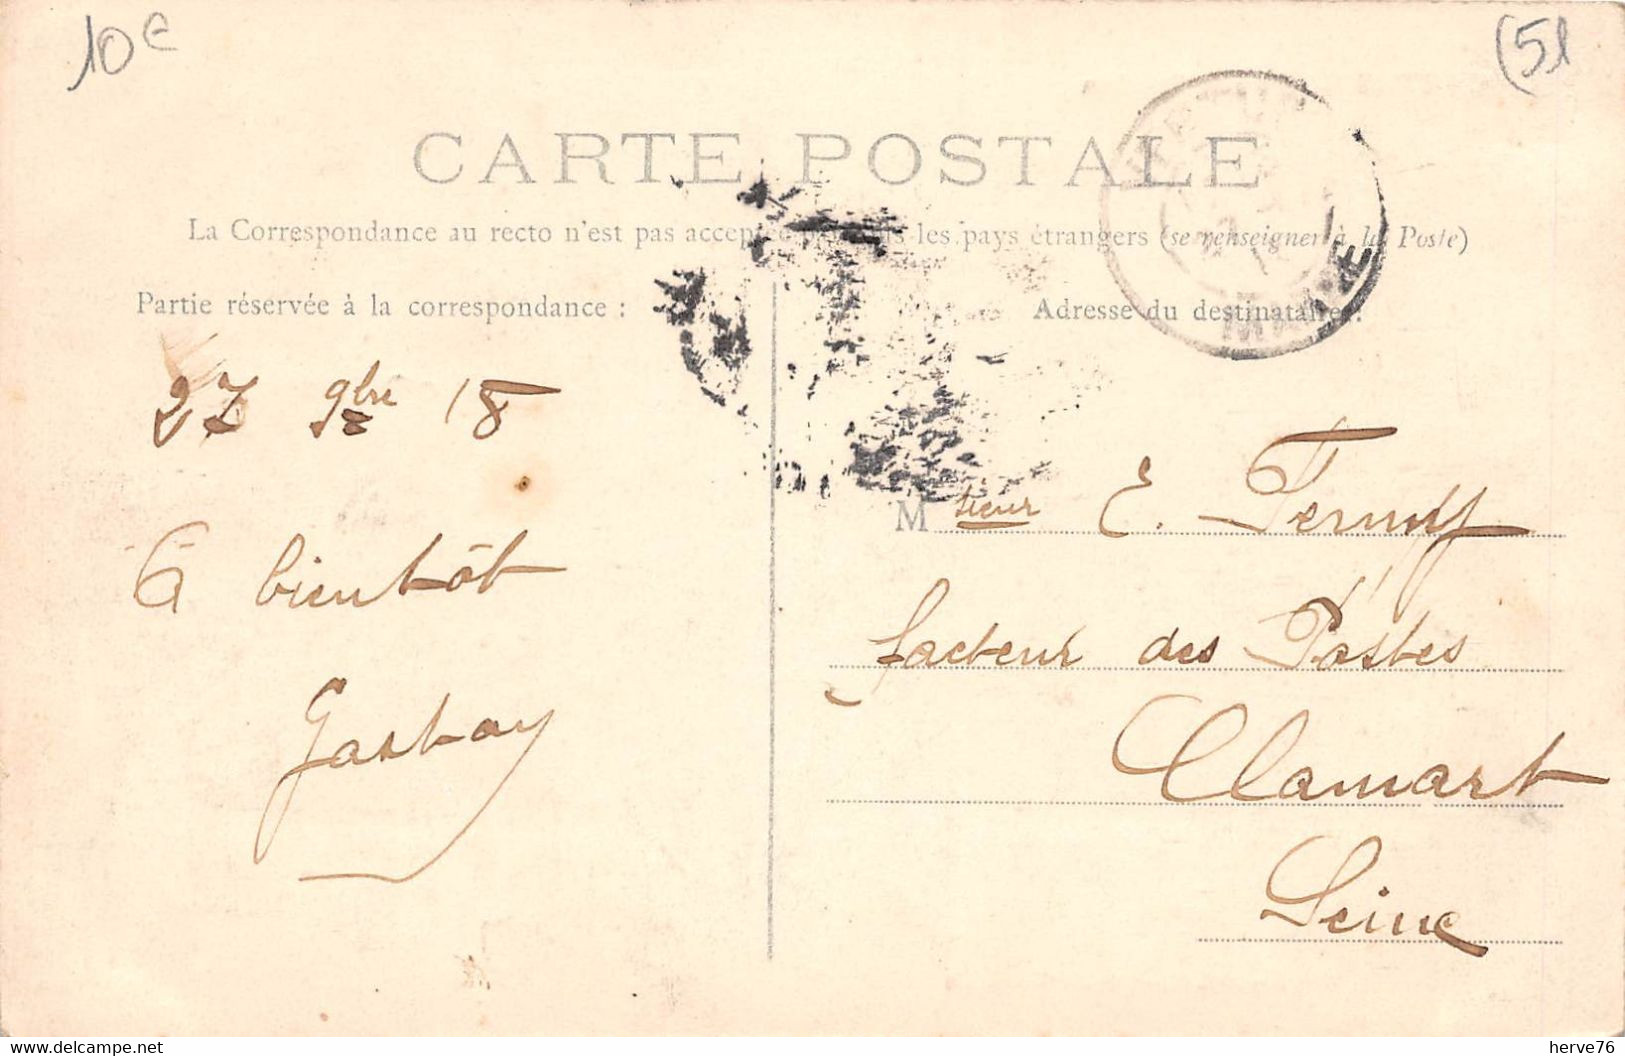 10€
(51
CARTE POSTALE
La Correspondance au recto n'est pas acceptée les pays étrangers (se renseigner à la Poste)
Partie réservée à la correspondance :
Adresse du destinataire :
27 9bre 18
À bientôt
Monsieur E.
facteur des Postes
Clamart
Seine
MARNE
delcampe.net
herve76